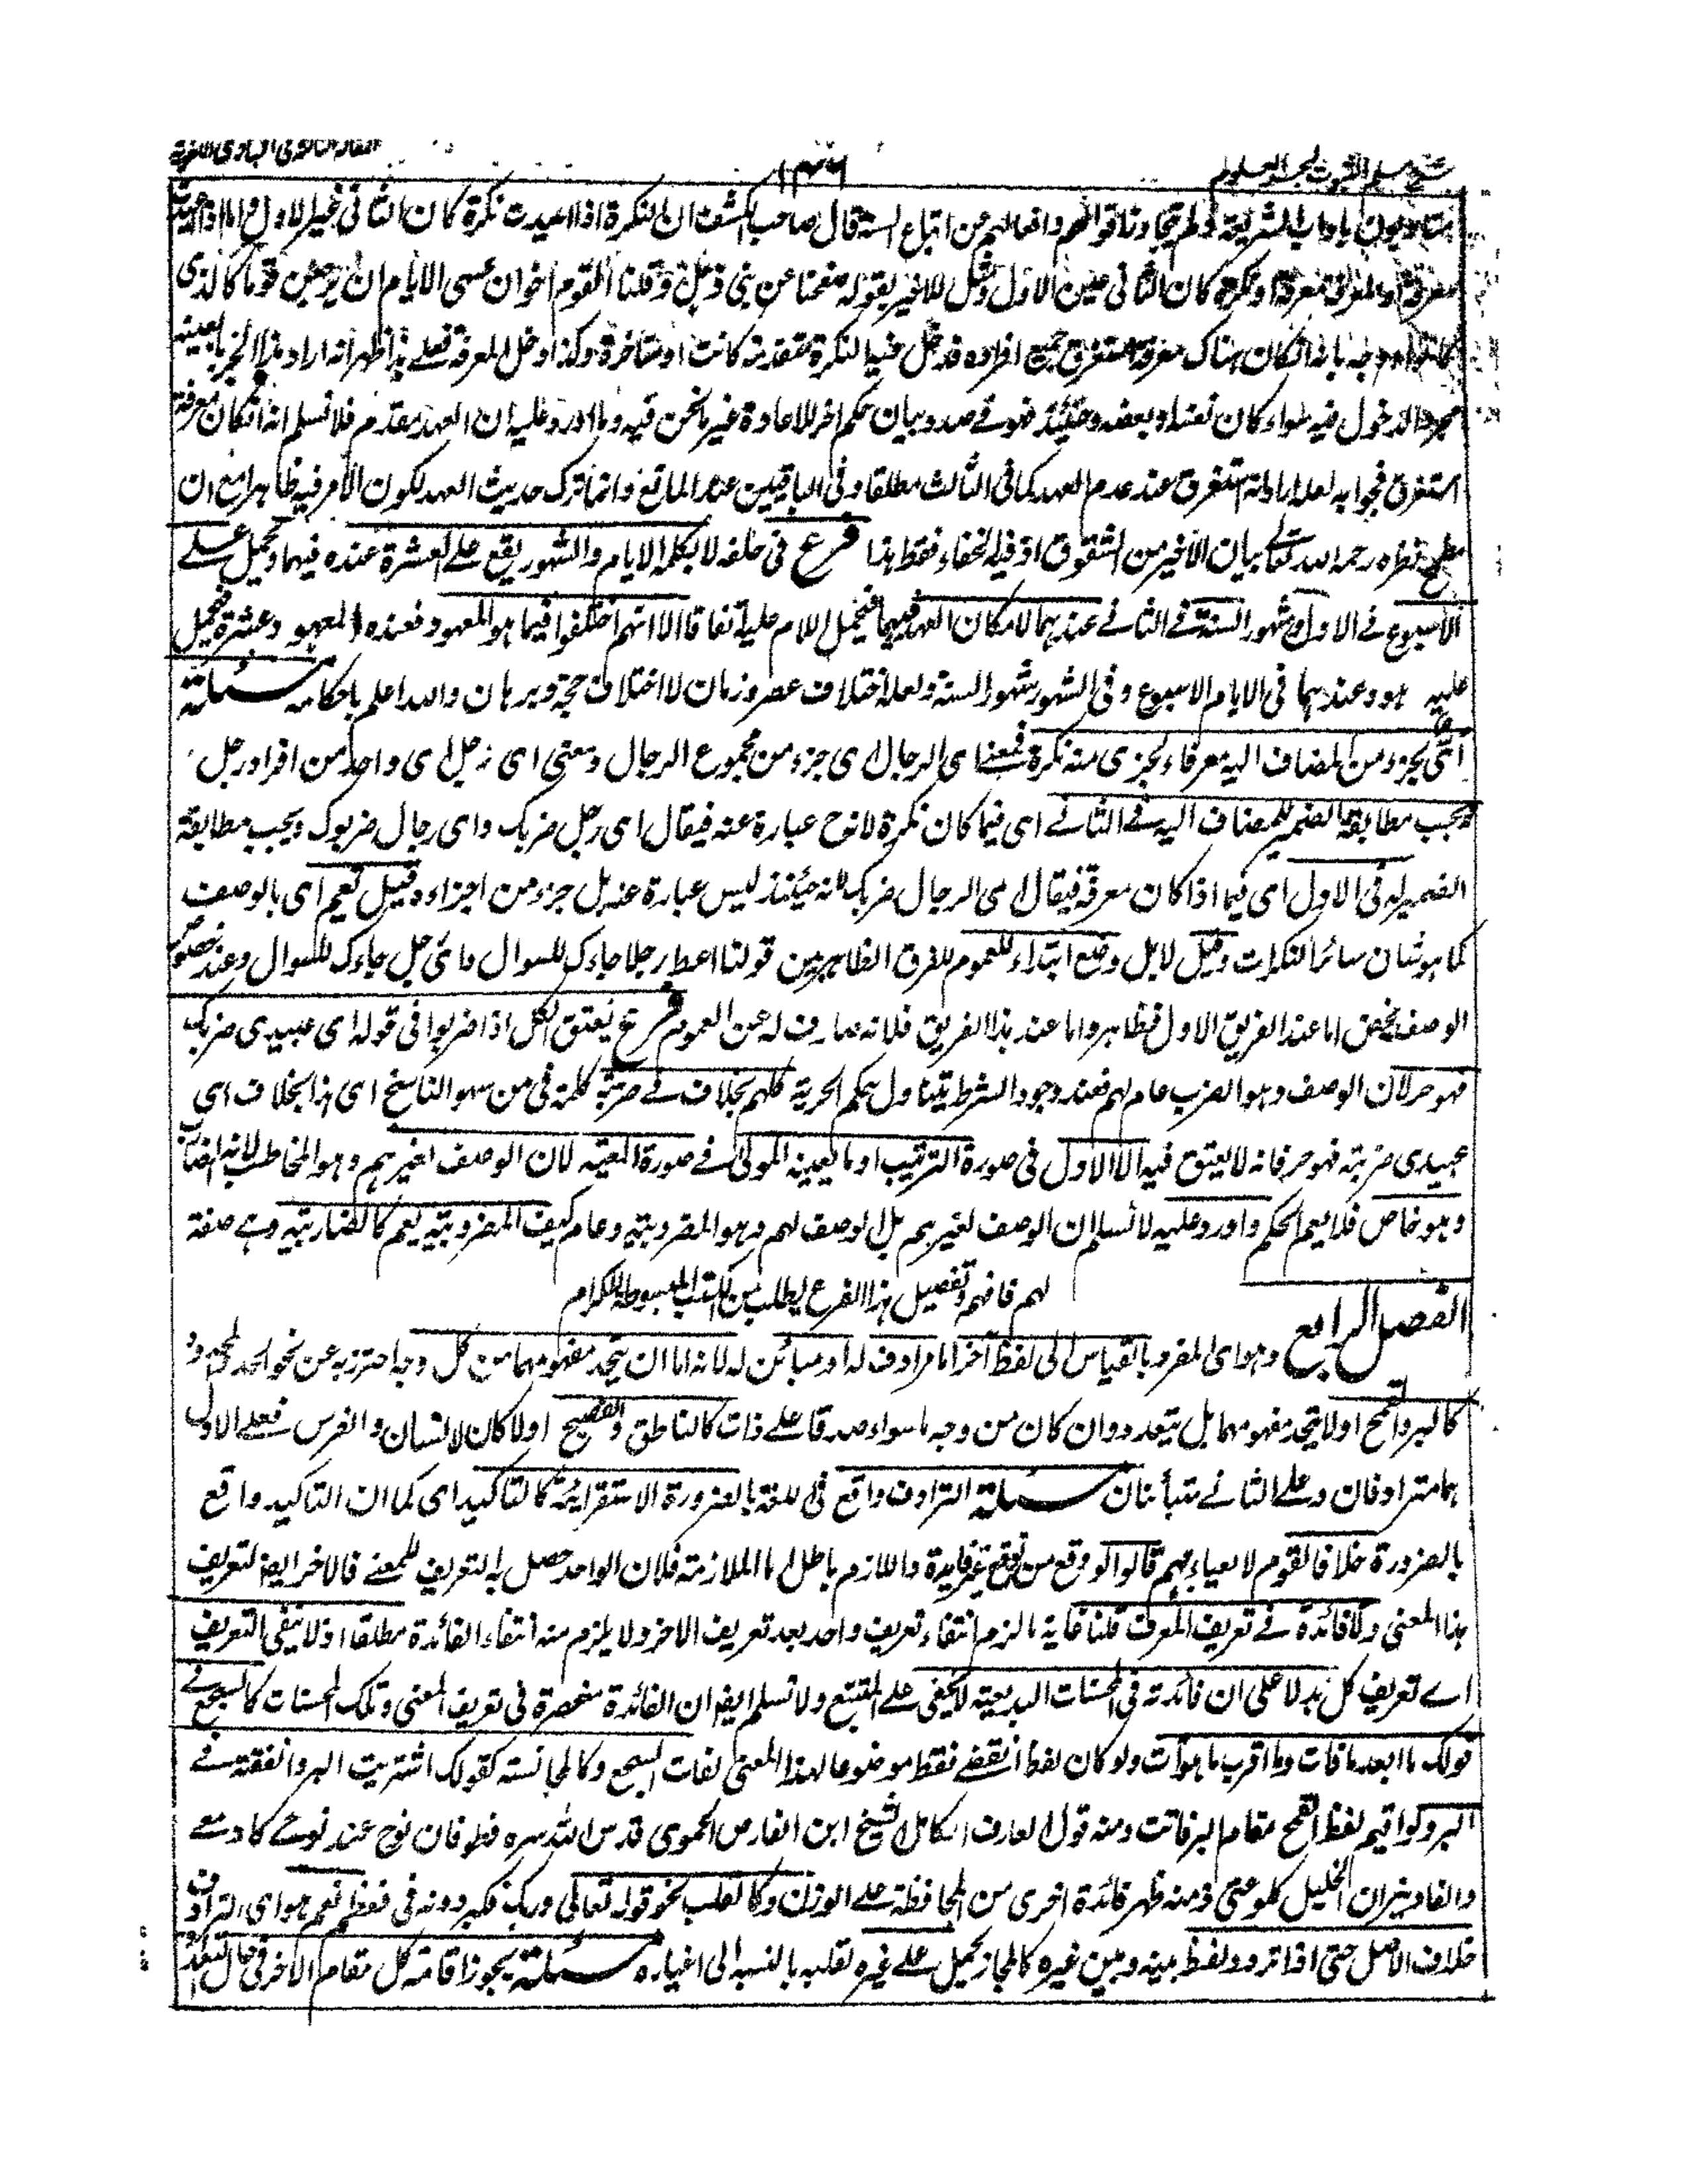 شرح مسلم الثبوت لبحر العلوم
١٣٦
متادبون بآداب الشريعة ولم يتجاوزنا قوالهم وافعالهم من اتباع السنة قال صاحب الكشف ان النكرة اذا اعيدت نكرة كان الثاني غير الاول واما اذا اعيدت
معرفة او المعرفة معرفة او نكرة كان الثاني عين الاول ومثل للاخير بقوله صفحنا عن بني ذهل وقلنا القوم اخوان عسى الايام ان يرجعن قوما كالذي
كانوا ووجه بانه ان كان هناك معرفة مستغرق جميع افراده فدخل فيها النكرة متقدمة كانت او متاخرة وكذا دخل المعرفة فعلى هذا ظهر انه اراد بهذا الخبر العينية
مجرد الدخول فيه سواء كان نفسه او بعضه وحينئذ فهو في صدد بيان حكم آخر للاعادة غير ما نحن فيه وما اورد عليه ان العهد مقدم فلا نسلم انه ان كان معرفة
استغرق فجوابه لعله اراد انه استغرق عند عدم العهد كما في الثالث مطلقا وفي الباقيين عند المانع وانما ترك حديث العهد لكون الامر فيه ظاهرا مع ان
مطمح نظره رحمه الله تعالى بيان الاخير من الشقوق اذ فيه الخفاء فقط هذا فرع في حلفه لا يكلمه الايام والشهور يقع على العشرة عنده فيهما ويحمل على
الاسبوع في الاول وشهور السنة في الثاني عندهما لامكان العهد فيهما فيحمل اللام عليه اتفاقا الا انهم اختلفوا فيما هو المعهود فعنده المعهود عشرة فيحمل
عليه هو وعندهما في الايام الاسبوع وفي الشهور شهور السنة ولعله اختلاف عصر وزمان لا اختلاف حجة وبرهان والله اعلم باحكامه مسئلة
اي لجزء من المضاف اليه معرفا ولجزئي منه نكرة فمعنى اي الرجال اي جزء من مجموع الرجال ومعنى اي رجل اي واحد من افراد رجل
ويجب مطابقة الضمير للمضاف اليه في الثاني اي فيما كان نكرة لانه ح عبارة عنه فيقال اي رجل ضربك واي رجال ضربوك ويجب مطابقة
الضمير له في الاول اي فيما اذا كان معرفة فيقال اي الرجال ضربك لانه حينئذ ليس عبارة عنه بل جزء من اجزاءه وقيل تعم اي بالوصف
كما هو شان سائر النكرات وقيل لا بل وضع ابتداء للعموم للفرق الظاهر بين قولنا اعط رجلا جاءك للسوال واي رجل جاءك للسوال وعند خصوص
الوصف يخص اما عند الفريق الاول فظاهر واما عند هذا الفريق فلانه صارف له عن العموم فرع يعتق الكل اذا ضربوا في قوله اي عبيدي ضربك
فهو حر لان الوصف وهو الضرب عام لهم فعند وجود الشرط يتناول حكم الحرية كلهم بخلاف في ضربته كلمة في من سهو الناسخ اي هذا بخلاف اي
عبيدي ضربته فهو حر فانه لا يعتق فيه الا الاول في صورة الترتيب او ما يعينه المولى في صورة المعية لان الوصف لغيرهم وهو المخاطب لانه اضاف
وهو خاص فلا يعم الحكم واورد عليه لا نسلم ان الوصف لغيرهم بل الوصف لهم وهو المضروبية وعام كيف المضروبية يعم كالضاربية وهي صفة
لهم فافهم وتفصيل هذا الفرع يطلب من الكتب المبسوطة للكرام
الفصل الرابع وهو اي المفرد بالقياس الى لفظ آخر اما مرادف له او مبائن له لانه اما ان يتحد مفهومهما من كل وجه احترز به عن نحو الحد والمحدود
كالبر والقمح او لا يتحد مفهومهما بل يتعدد وان كان من وجه ما سواء صدقا على ذات كالناطق والفصيح او لا كان الانسان والفرس فعلى الاول
هما مترادفان وعلى الثاني متبائنان مسئلة الترادف واقع في اللغة بالضرورة الاستقرائية كالتاكيد اي كما ان التاكيد واقع
بالضرورة خلافا لقوم لا يعباء بهم قالوا لو وقع من وقع غير فايدة واللازم باطل اما الملازمة فلان الواحد حصل به التعريف للمعنى فالاخر ايضا لتعريف
هذا المعنى ولا فائدة في تعريف المعرف قلنا غاية ما لزم انتفاء تعريف واحد بعد تعريف الاخر ولا يلزم منه انتفاء الفائدة مطلقا اذ لا ينفى التعريف
اي تعريف كل بدلا على ان فائدته في المحسنات البديعية لا يخفى على المتتبع ولا نسلم ايضا ان الفائدة منحصرة في تعريف المعنى وتلك المحسنات كالسجع في
قولك ما ابعد ما فات وما اقرب ما هو آت ولو كان لفظ انقضى فقط موضوعا لهذا المعنى لفات السجع وكالمجانسة كقولك اشتريت البر وانفقته في
البر ولو اقيم لفظ القمح مقام البر فاتت ومنه قول العارف الكامل الشيخ ابن الفارض الحموي قدس الله سره فطوفان نوح عند نوحي كادمعي
وايقاد نيران الخليل كلوعتي ومنه ظهر فائدة اخرى من المحافظة على الوزن وكالقلب نحو قوله تعالى وربك فكبر دونه في فعظم نعم هو اي الترادف
خلاف الاصل حتى اذا تردد لفظ بينه وبين غيره كالمجاز يحمل على غيره لقلته بالنسبة الى اغياره مسئلة يجوز اقامة كل مقام الآخر في حال التعدد